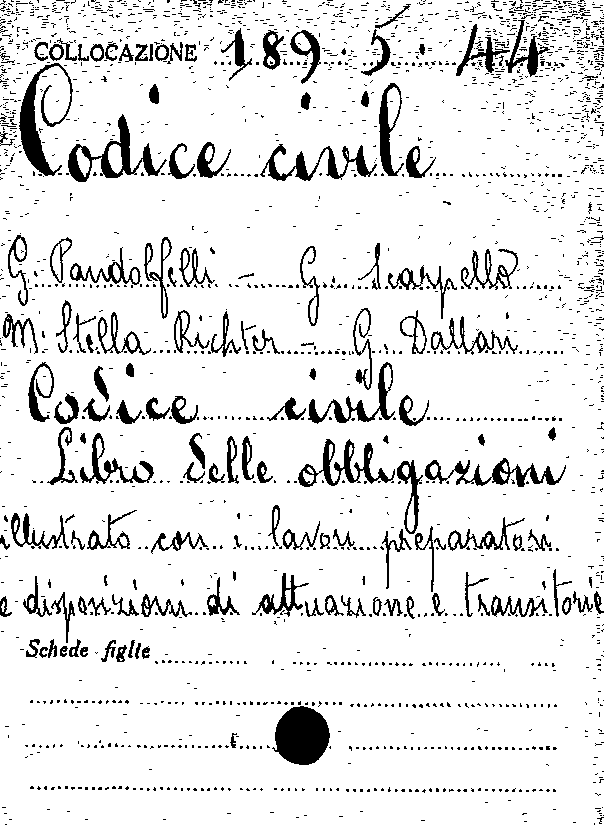 COLLOCAZIONE 189.5.44
Codice civile
G. Pandolfelli - G. Scarpello
M. Stella Richter - G. Dallari
Codice civile
Libro delle obbligazioni
illustrato con i lavori preparatori
e disposizioni di attuazione e transitorie
Schede figlie